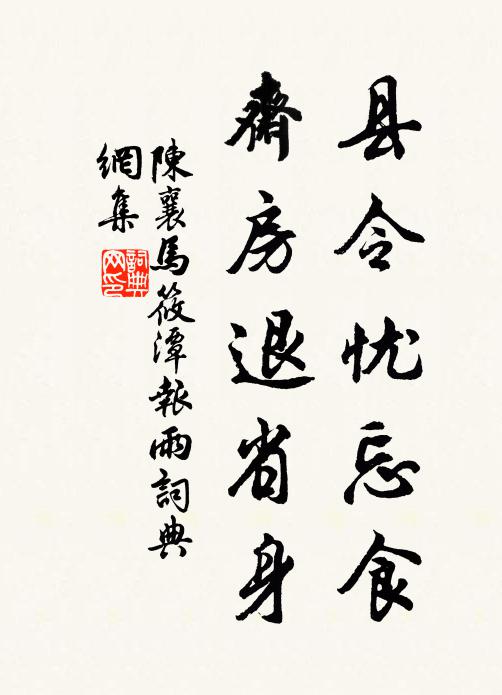 县令忧忘食
斋房退省身
陳襄馬筱潭報雨詞典
網集
詞典
网印